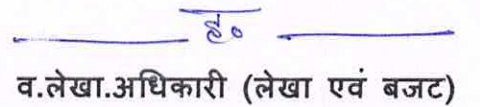 ह०
व.लेखा.अधिकारी (लेखा एवं बजट)